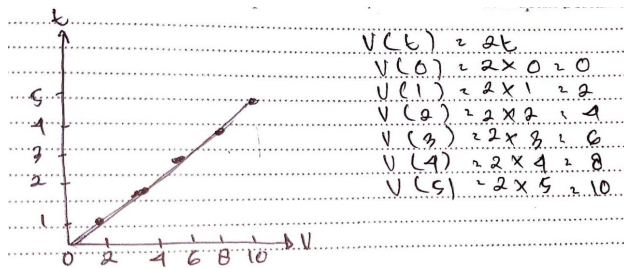 t
5
4
3
2
1
0 2 4 6 8 10 V
V(t) = 2t
V(0) = 2 × 0 = 0
V(1) = 2 × 1 = 2
V(2) = 2 × 2 = 4
V(3) = 2 × 3 = 6
V(4) = 2 × 4 = 8
V(5) = 2 × 5 = 10